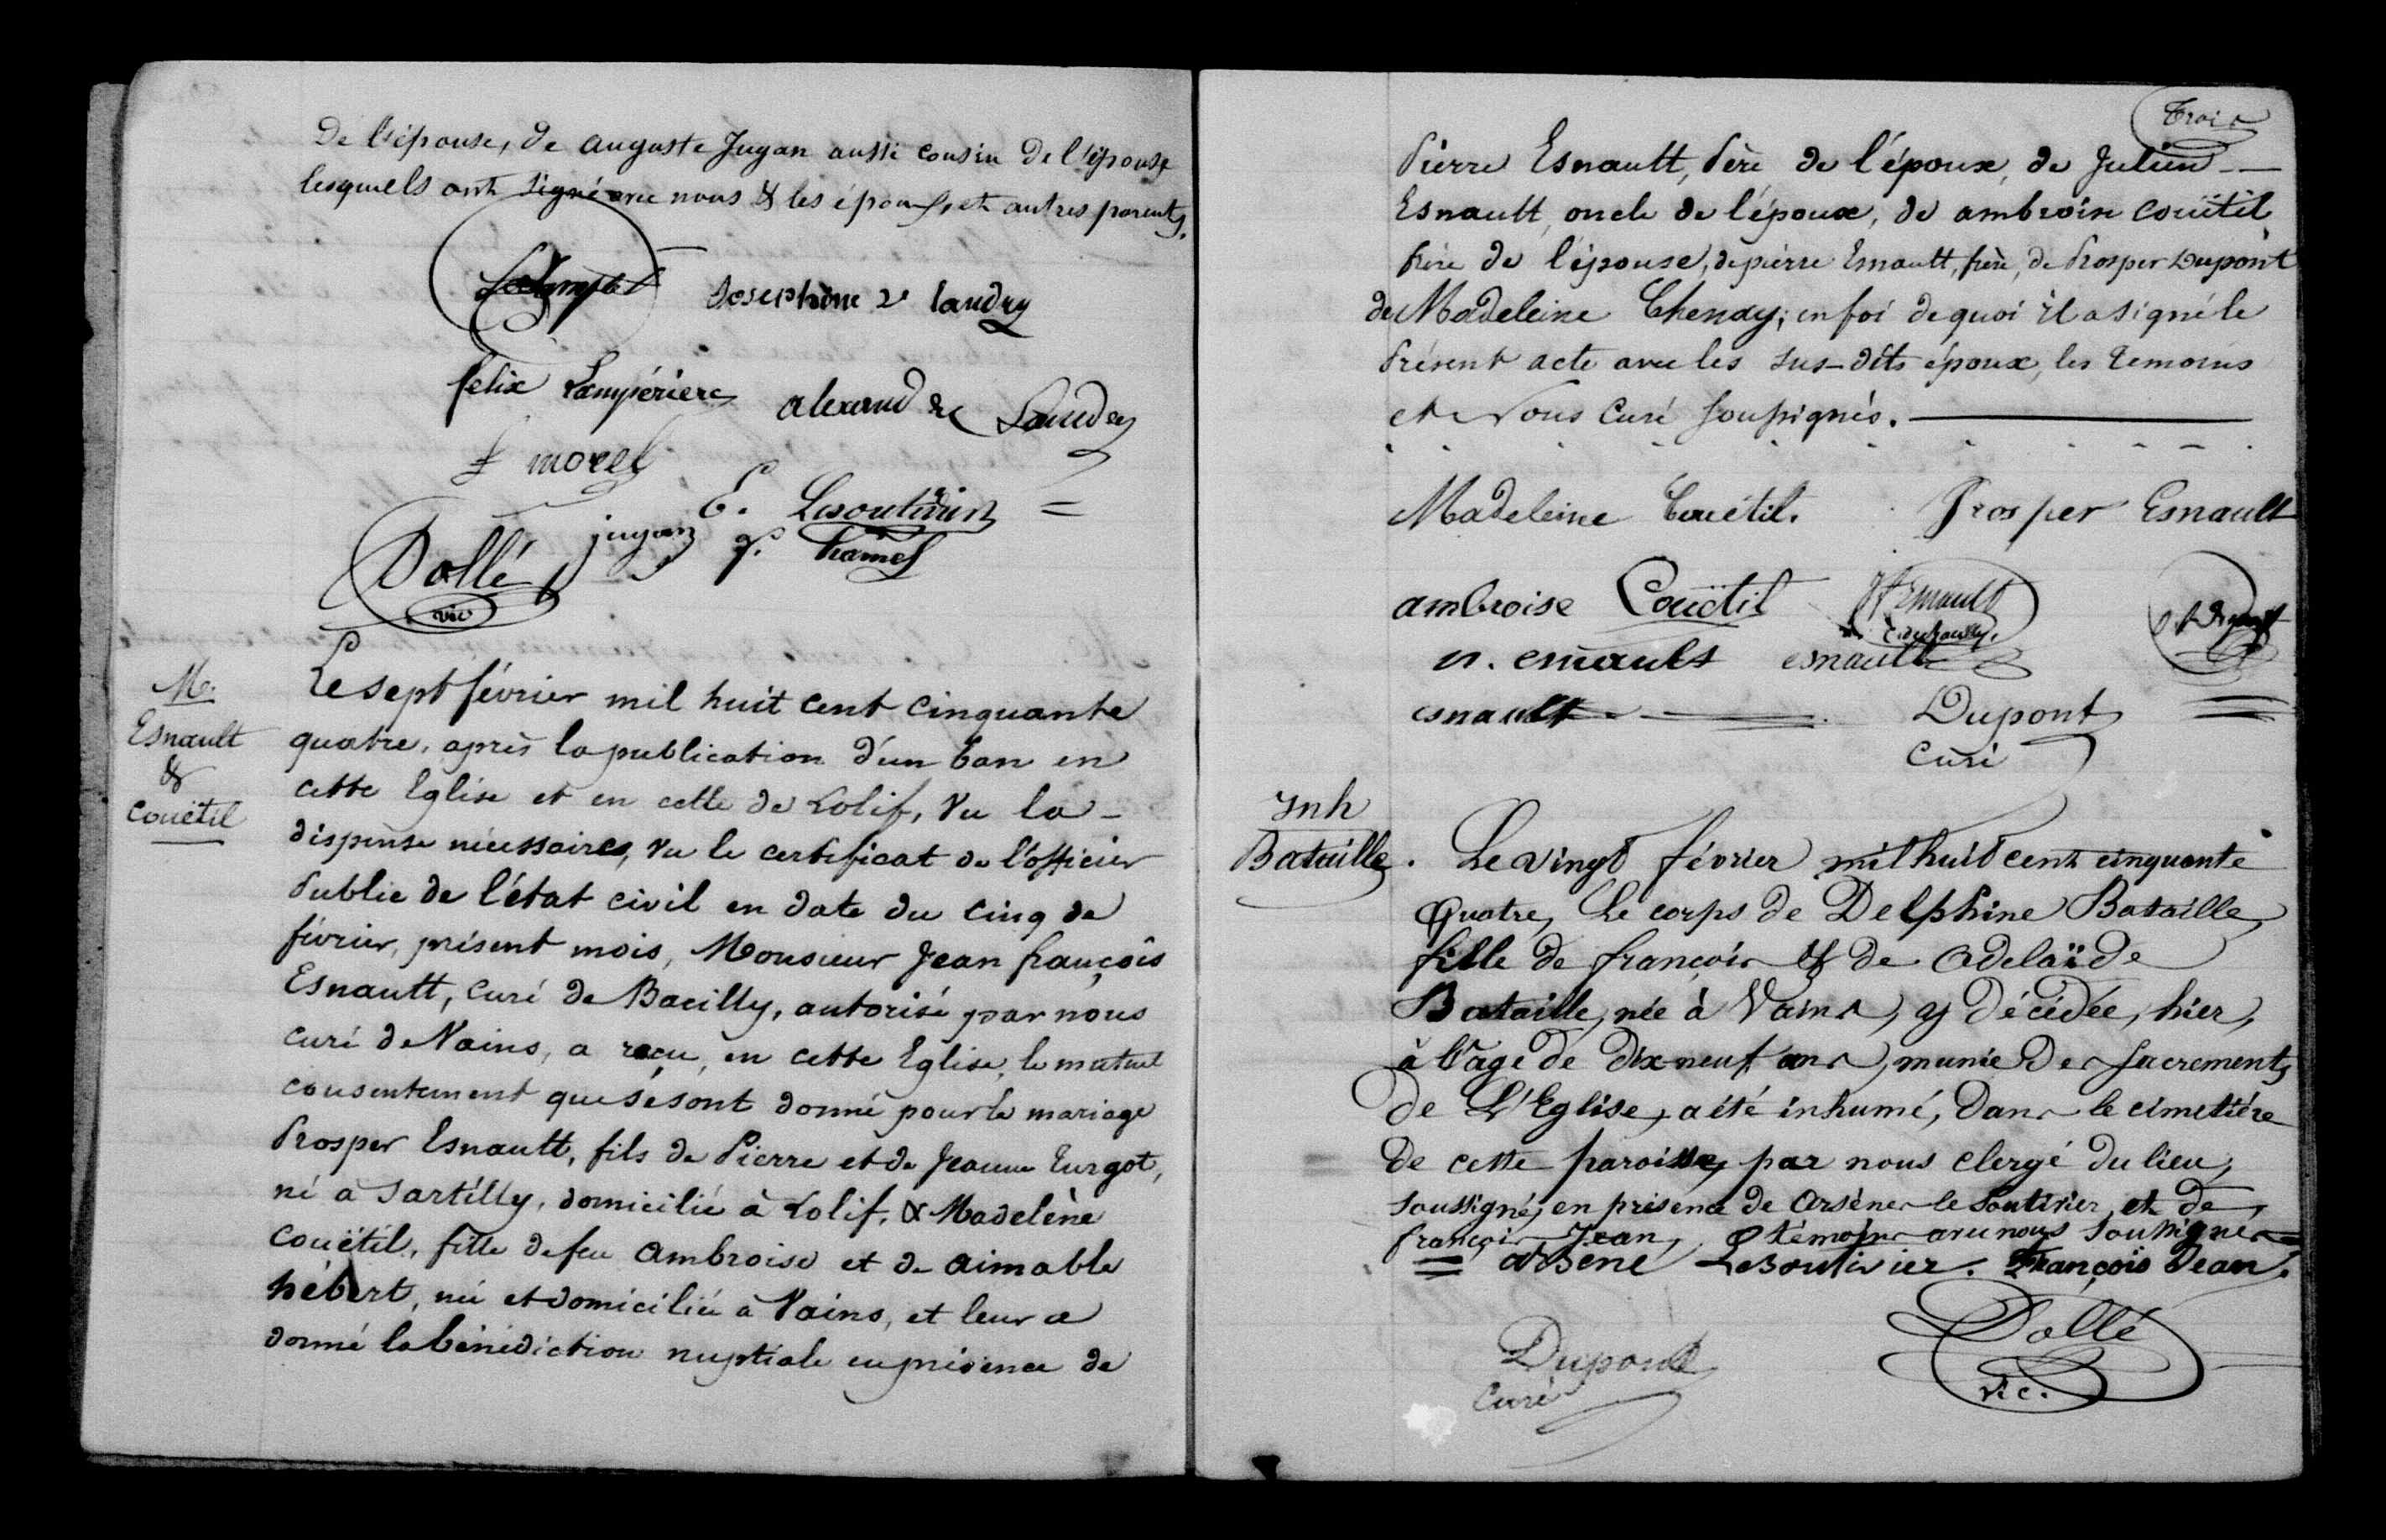 De l'épouse, de auguste Jugan aussi cousin De l'épouse
lesquels ont signé avec nous & les époux, et autres parents.
Josephine Landry
felix Lampérière alexandre Landry
f morel
E. Lesoutivier =
jugan hamel
Dollé
vic
M.
Esnault
&
Couëtil
Le sept février mil huit cent cinquante
quatre, après la publication d'un ban en
cette Eglise et en celle de Lolif, vu la -
dispense nécessaires, vu le certificat de l'officier
Public de l'état civil en date du cinq de
février, présent mois, Monsieur Jean françois
Esnault, curé de Bacilly, autorisé par nous
curé de Vains, a reçu, en cette Eglise, le mutuel
consentement que se sont donné pour le mariage
Prosper Esnault, fils de Pierre et de Jeanne Turgot,
né à Sartilly, domicilié à Lolif, & Madelène
Couëtil, fille de feu Ambroise et de aimable
hébert, née et domiciliée à Vains, et leur a
donné la bénédiction nuptiale en présence de
Trois
Pierre Esnault, Père de l'époux, de Julien -
Esnault, oncle de l'époux, de ambroise couëtil
frère de l'épouse, de pierre Esnault, frère, de Prosper Dupont
de Madeleine Chenay; en foi de quoi il a signé le
Présent acte avec les sus-dits époux, les temoins
et Nous Curé soussignés.
Madeleine Couétil. Prosper Esnault
ambroise Couëtil Esnault
c. de bacilly.
esnault
esnault Dupont
Curé
Inh
Bataille.
Le vingt février mil huit cent cinquante
Quatre, Le corps de Delphine Bataille,
fille de françois & de Adelaïde
Bataille, née à Vains, y Décédée, hier,
à l'age de dix neuf ans, munie Des Sacrements
De L'Eglise, a été inhumé, Dans le cimetière
De cette paroisse, par nous clergé du lieu,
soussigné, en présence de Arsène le Soutivier, et de
françois Jean, témoins avec nous soussignés
= arsene Lesoutivier. François Jean.
Dupont
Curé
Dollé
vic.